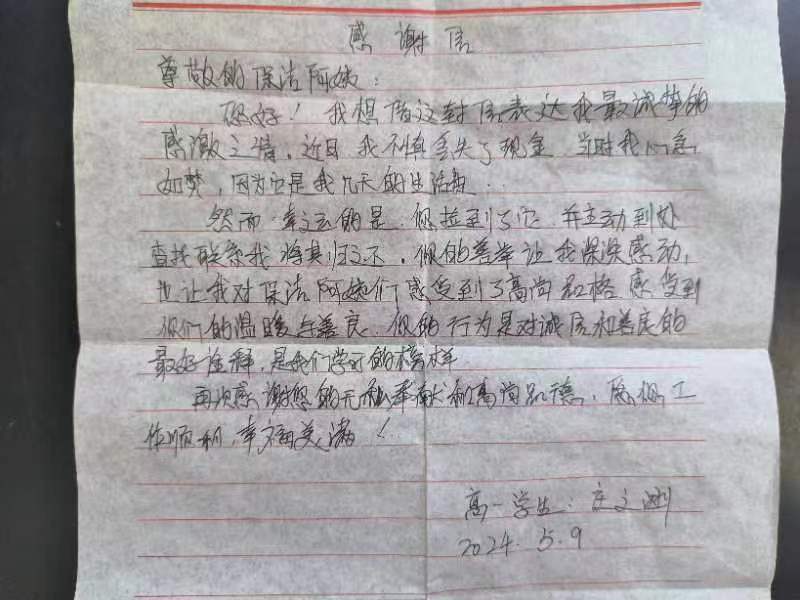 感谢信
尊敬的保洁阿姨：
您好！我想借这封信表达我最诚挚的
感激之情，近日我不慎丢失了现金 当时我心急
如焚，因为它是我几天的生活费．
然而幸运的是．您捡到了它 并主动到处
查找联系我将其归还．您的善举让我深深感动，
也让我对保洁阿姨们感受到了高尚品格 感受到
你们的温暖与善良．您的行为是对诚信和善良的
最好诠释，是我们学习的榜样
再次感谢您的无私奉献和高尚品德，愿您工
作顺利，幸福美满！
高一学生：庄
2024．5．9